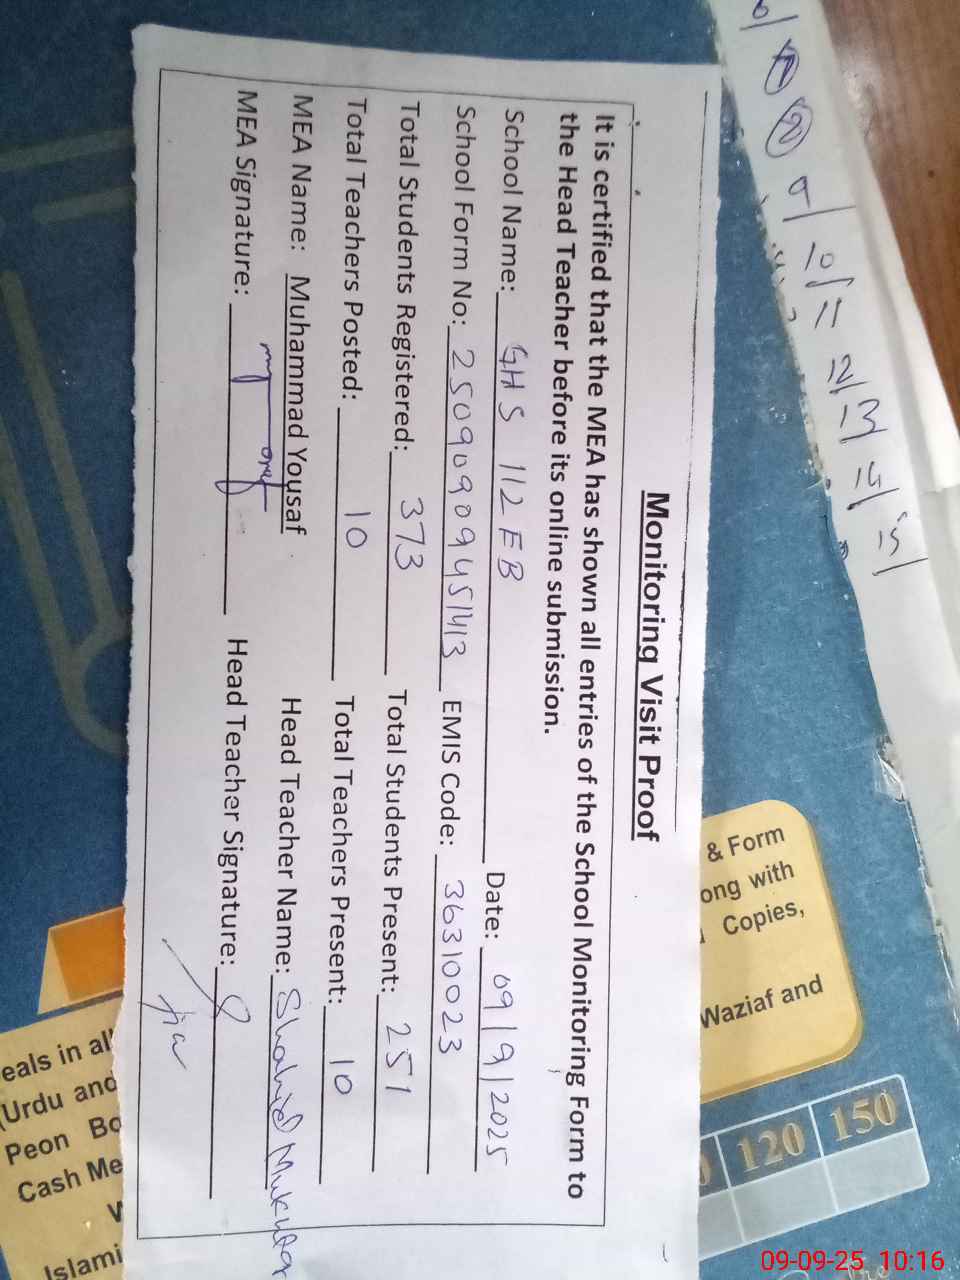 Monitoring Visit Proof
It is certified that the MEA has shown all entries of the School Monitoring Form to
the Head Teacher before its online submission.
School Name: GHS 112 EB Date: 09/9/2025
School Form No: 25090909451413 EMIS Code: 36310023
Total Students Registered: 373 Total Students Present: 251
Total Teachers Posted: 10 Total Teachers Present: 10
MEA Name: Muhammad Yousaf Head Teacher Name: Shahid
MEA Signature: Head Teacher Signature:
& Form
ong with
Copies,
Waziaf and
120 150
eals in all
Urdu and
Peon Bo
Cash Me
Islami
09-09-25 10:16